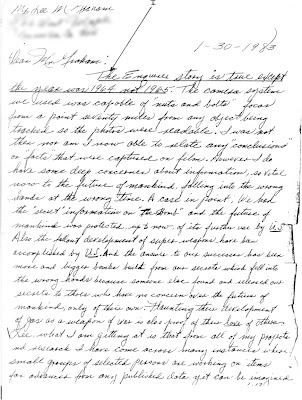 1-30-1983
Dear Mr. Grahame:
The Enquirer story is true except
the year was 1964 not 1965. The camera system
we used was capable of "nuts and bolts" focus
from a point seventy miles from any object being
tracked so the photos were readable. I was not
then nor am I now able to relate any "conclusions"
on facts that were captured on film. However I do
have some deep concerns about information, so vital
now to the future of mankind, falling into the wrong
hands at the wrong time. A case in point. We had
the "secret" information on the Bomb and the future of
mankind was protected up to now of its further use by U.S.
Also the development of super weapons have been
accomplished by U.S. And the answer to our successes has been
more and bigger bombs built from our secrets which fell into
the wrong hands because someone else found and released our
secrets to those who have no concern over the future of
mankind, only of their own. Haunting their development
of gas as a weapon of war is also proof of their of others.
See what I am getting at is that from all of my projects
and research I have come across many instances where
small groups of selected persons are working on items
far advanced from any published data yet can be imagined